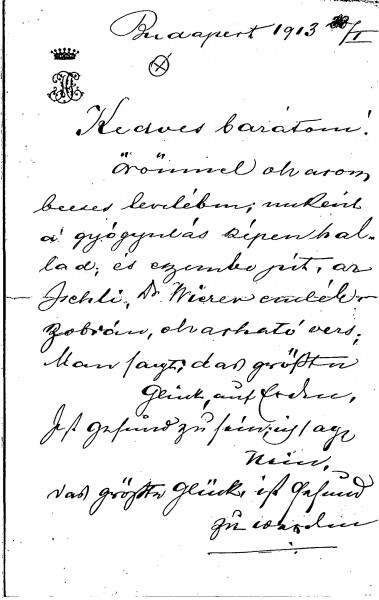 Budapest 1913 /I
Kedves barátom!
örömmel olvasom,
becses levelében, miként
a gyógyulás szépen hal-
lad, és eszembe jut, az
Ischli, Dr. Wirer emlék-
szobrán, olvasható vers;
Man sagt, das größte
Glück, auf Erden,
Ist gesund zu sein, ich sage
Nein,
das größte Glück, ist Gesund
zu werden